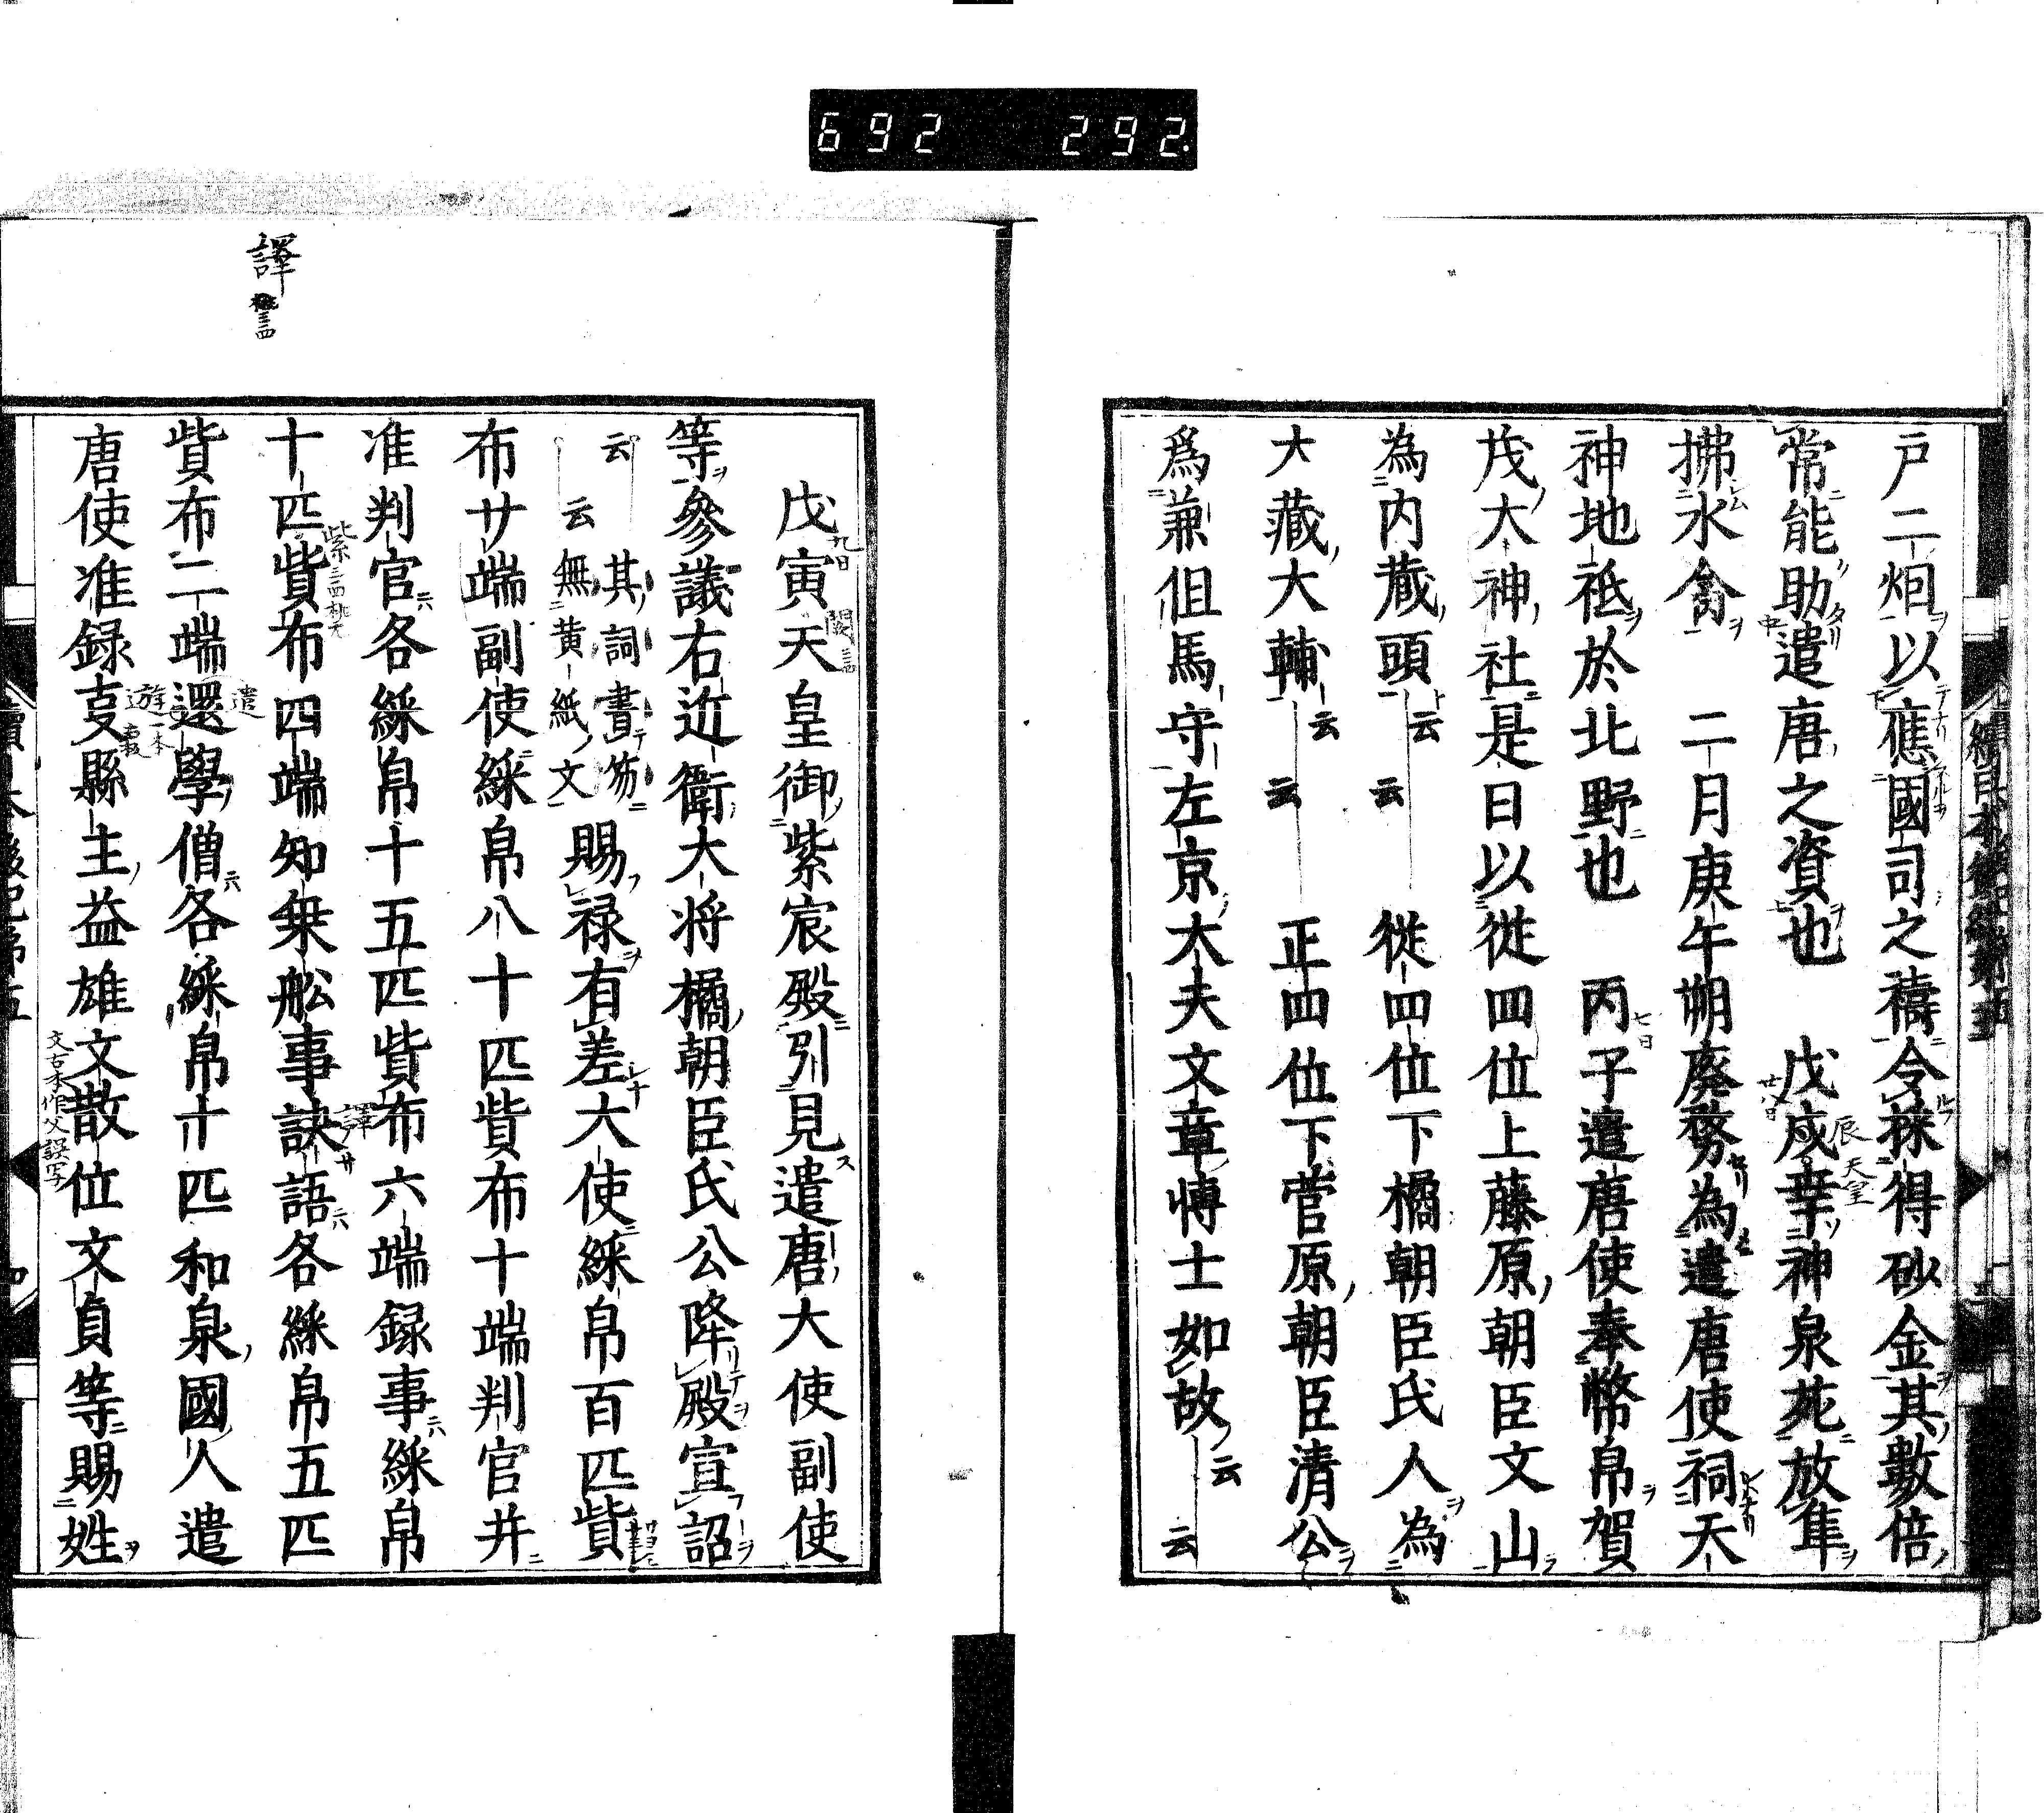 692 292
戸二烟以應國司之禱令採得砂金其數倍
常能助遣唐之資也 戊戌幸神泉苑放隼
拂水禽 二月庚午朔廢務為遣唐使祠天
神地祇於北野也 丙子遣唐使奉幣帛賀
茂大神社是日以從四位上藤原朝臣文山
為内藏頭云云從四位下橘朝臣氏人為
大藏大輔云云正四位下菅原朝臣清公
爲兼但馬守左京大夫文章博士如故云云
戊寅天皇御紫宸殿引見遣唐大使副使
等參議右近衛大将橘朝臣氏公降殿宣詔
云云其詞書笏無黄紙文賜禄有差大使綵帛百匹貲
布廿端副使綵帛八十匹貲布十端判官并
准判官各綵帛十五匹貲布六端録事綵帛
十匹貲布四端知乗舩事訣語各綵帛五匹
貲布二端還學僧各綵帛十匹和泉國人遣
唐使准録叓縣主益雄文散位文貞等賜姓
譯
七日
廿八日
辰
天皇
九日
譯
遣
遊
文古本作父誤写